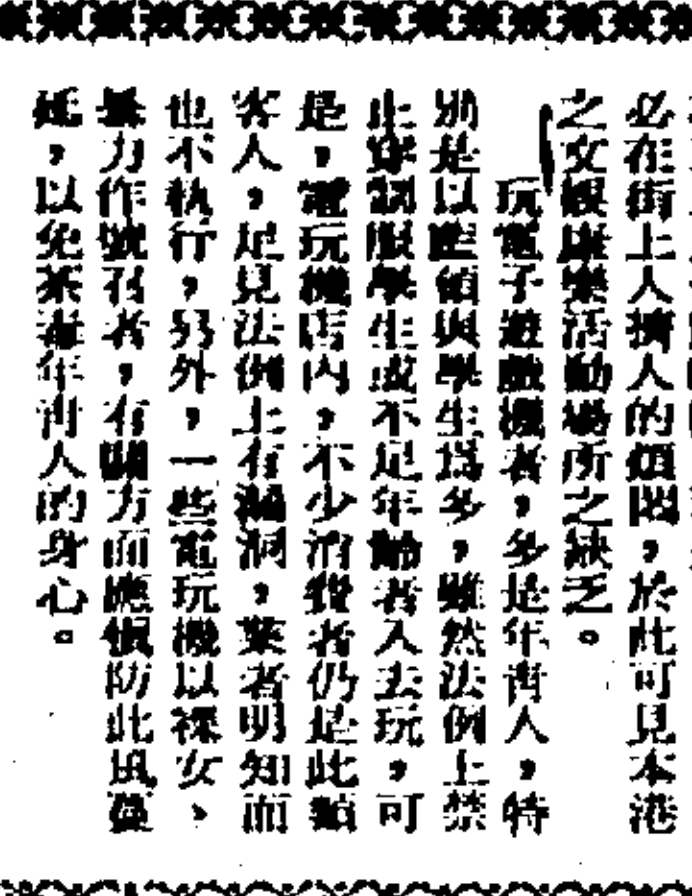 必在街上人擠人的煩悶，於此可見本港
之文娛康樂活動場所之缺乏。
玩電子遊戲機者，多是年靑人，特
別是以藍領與學生爲多，雖然法例上禁
止穿制服學生或不足年齡者入去玩，可
是，電玩機店內，不少消費者仍是此類
客人，足見法例上有漏洞，業者明知而
也不執行，另外，一些電玩機以裸女、
暴力作號召者，有關方面應愼防此風蔓
延，以免荼毒年靑人的身心。